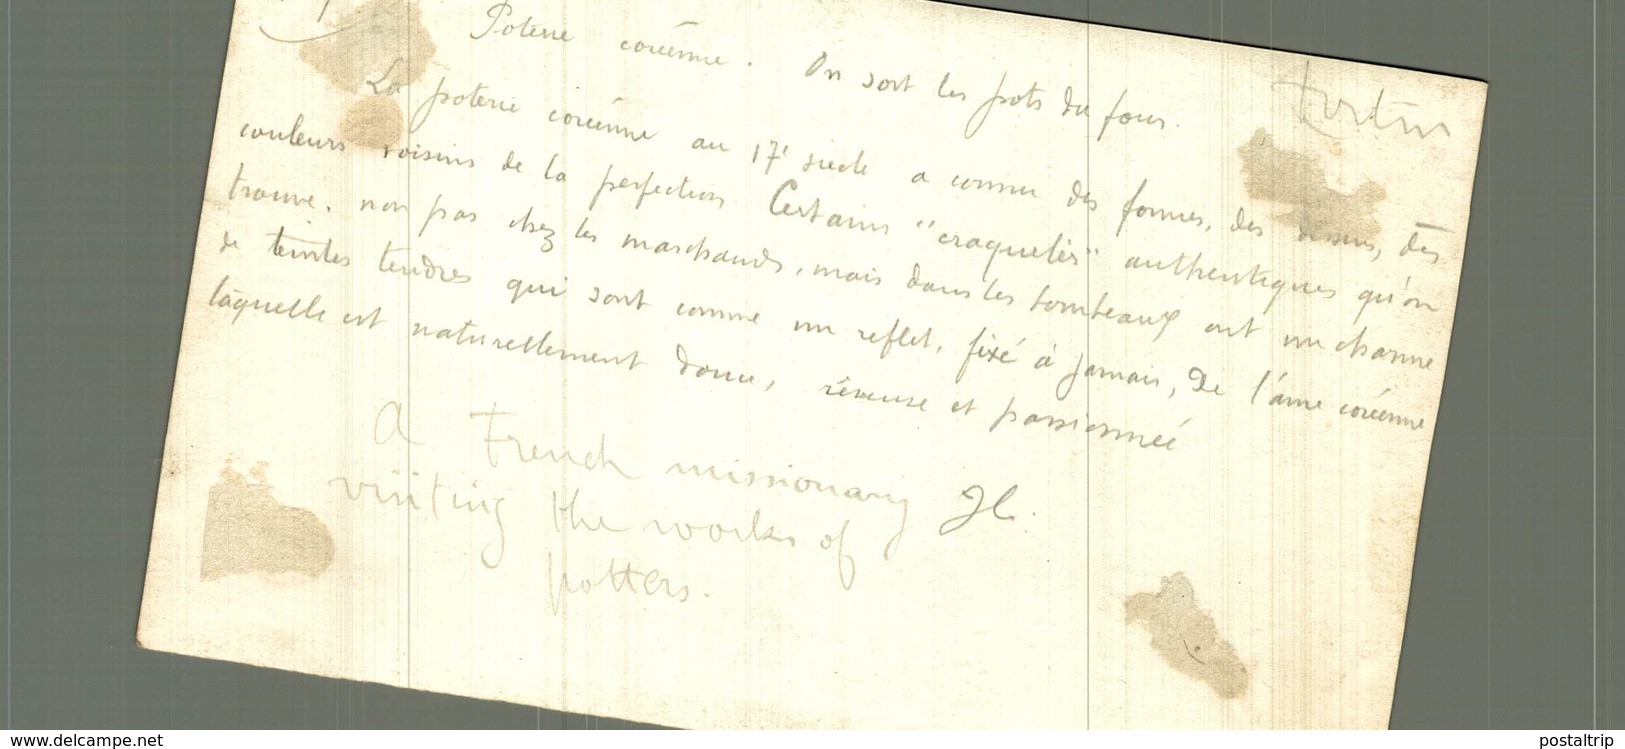 Poterie coréenne. On sort les pots du four.
La poterie coréenne au 17e siècle a connu des formes, des dessins, des
couleurs voisins de la perfection. Certains "craquelés" authentiques qu'on
trouve, non pas chez les marchands, mais dans les tombeaux ont un charme
de teintes tendres qui sont comme un reflet, fixé à jamais, de l'âme coréenne
laquelle est naturellement douce, rêveuse et passionnée
A French missionary
visiting the works of
potters.
www.delcampe.net
postaltrip